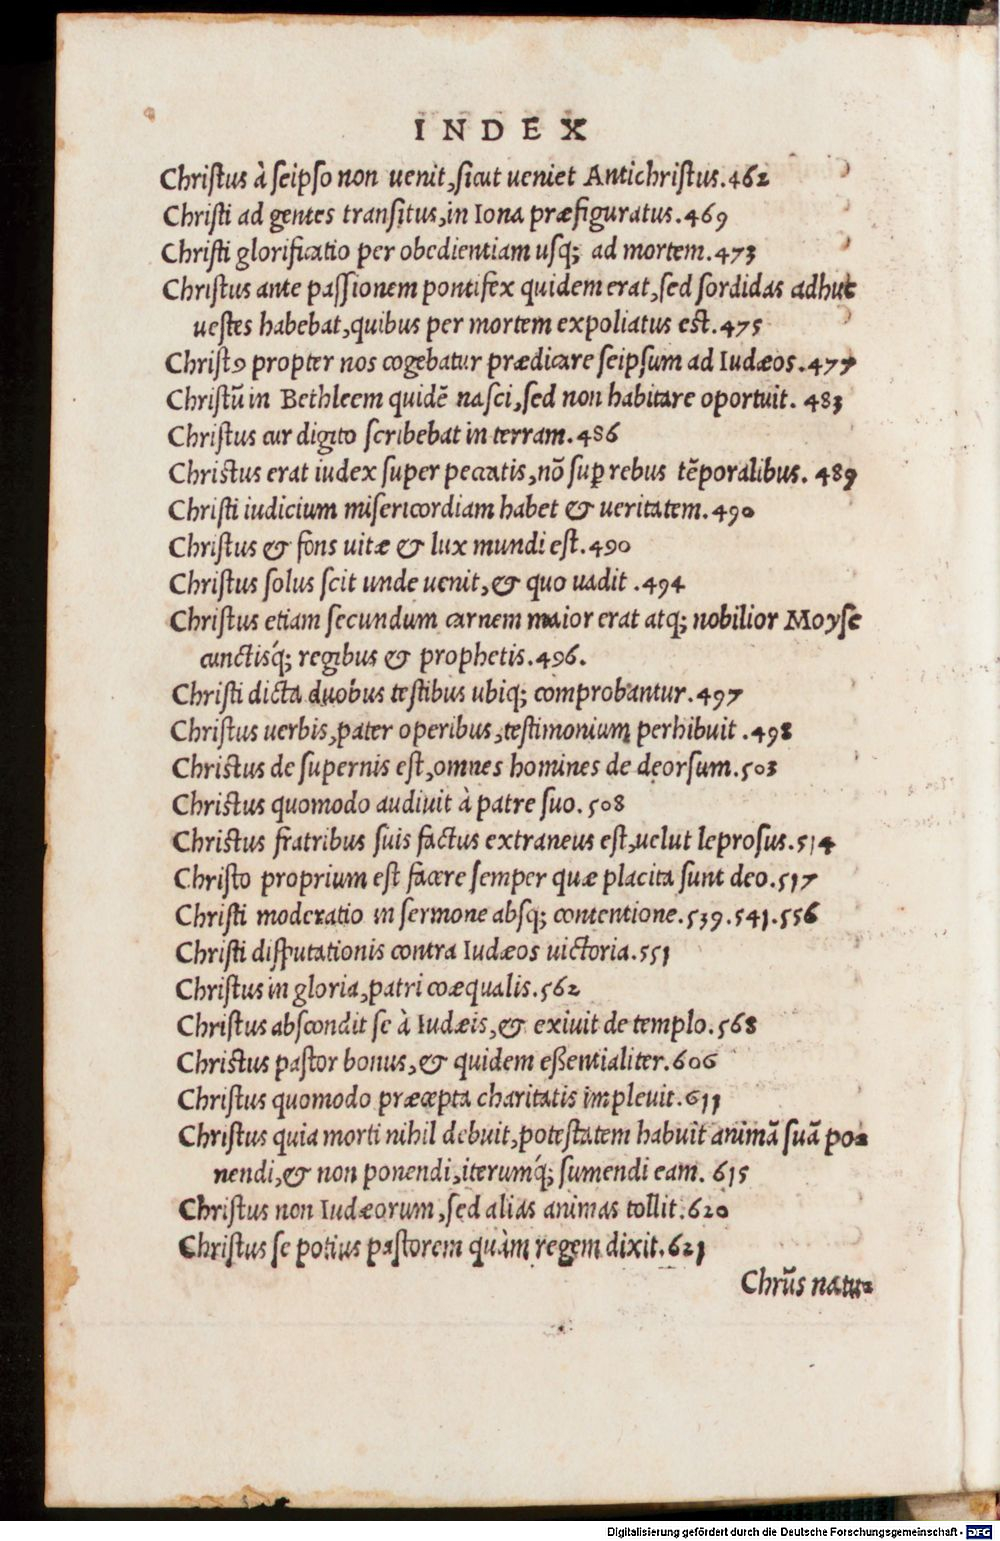 INDEX
Chriſtus à ſeipſo non uenit, ſicut ueniet Antichriſtus. 462
Chriſti ad gentes tranſitus, in Iona præfiguratus. 469
Chriſti glorificatio per obedientiam uſq; ad mortem. 473
Chriſtus ante paſſionem pontifex quidem erat, ſed ſordidas adhuc
ueſtes habebat, quibus per mortem expoliatus eſt. 475
Chriſtꝰ propter nos cogebatur prædicare ſeipſum ad Iudæos. 477
Chriſtū in Bethleem quidē naſci, ſed non habitare oportuit. 483
Chriſtus cur digito ſcribebat in terram. 486
Chriſtus erat iudex ſuper peccatis, nō ſuꝑ rebus tēporalibus. 489
Chriſti iudicium miſericordiam habet & ueritatem. 490
Chriſtus & fons uitæ & lux mundi eſt. 490
Chriſtus ſolus ſcit unde uenit, & quo uadit. 494
Chriſtus etiam ſecundum carnem maior erat atq; nobilior Moyſe
cunctisq́; regibus & prophetis. 496.
Chriſti dicta duobus teſtibus ubiq; comprobantur. 497
Chriſtus uerbis, pater operibus, teſtimonium perhibuit. 498
Chriſtus de ſupernis eſt, omnes homines de deorſum. 503
Chriſtus quomodo audiuit à patre ſuo. 508
Chriſtus fratribus ſuis factus extraneus eſt, uelut leproſus. 514
Chriſto proprium eſt facere ſemper quæ placita ſunt deo. 517
Chriſti moderatio in ſermone abſq; contentione. 539. 541. 556
Chriſti diſputationis contra Iudæos uictoria. 551
Chriſtus in gloria, patri coæqualis. 562
Chriſtus abſcondit ſe à Iudæis, & exiuit de templo. 568
Chriſtus paſtor bonus, & quidem eßentialiter. 606
Chriſtus quomodo præcepta charitatis impleuit. 611
Chriſtus quia morti nihil debuit, poteſtatem habuit animā ſuā po-
nendi, & non ponendi, iterumq́; ſumendi eam. 615
Chriſtus non Iudæorum, ſed alias animas tollit. 620
Chriſtus ſe potius paſtorem quàm regem dixit. 621
Chrūs natu-
Digitalisierung gefördert durch die Deutsche Forschungsgemeinschaft - DFG